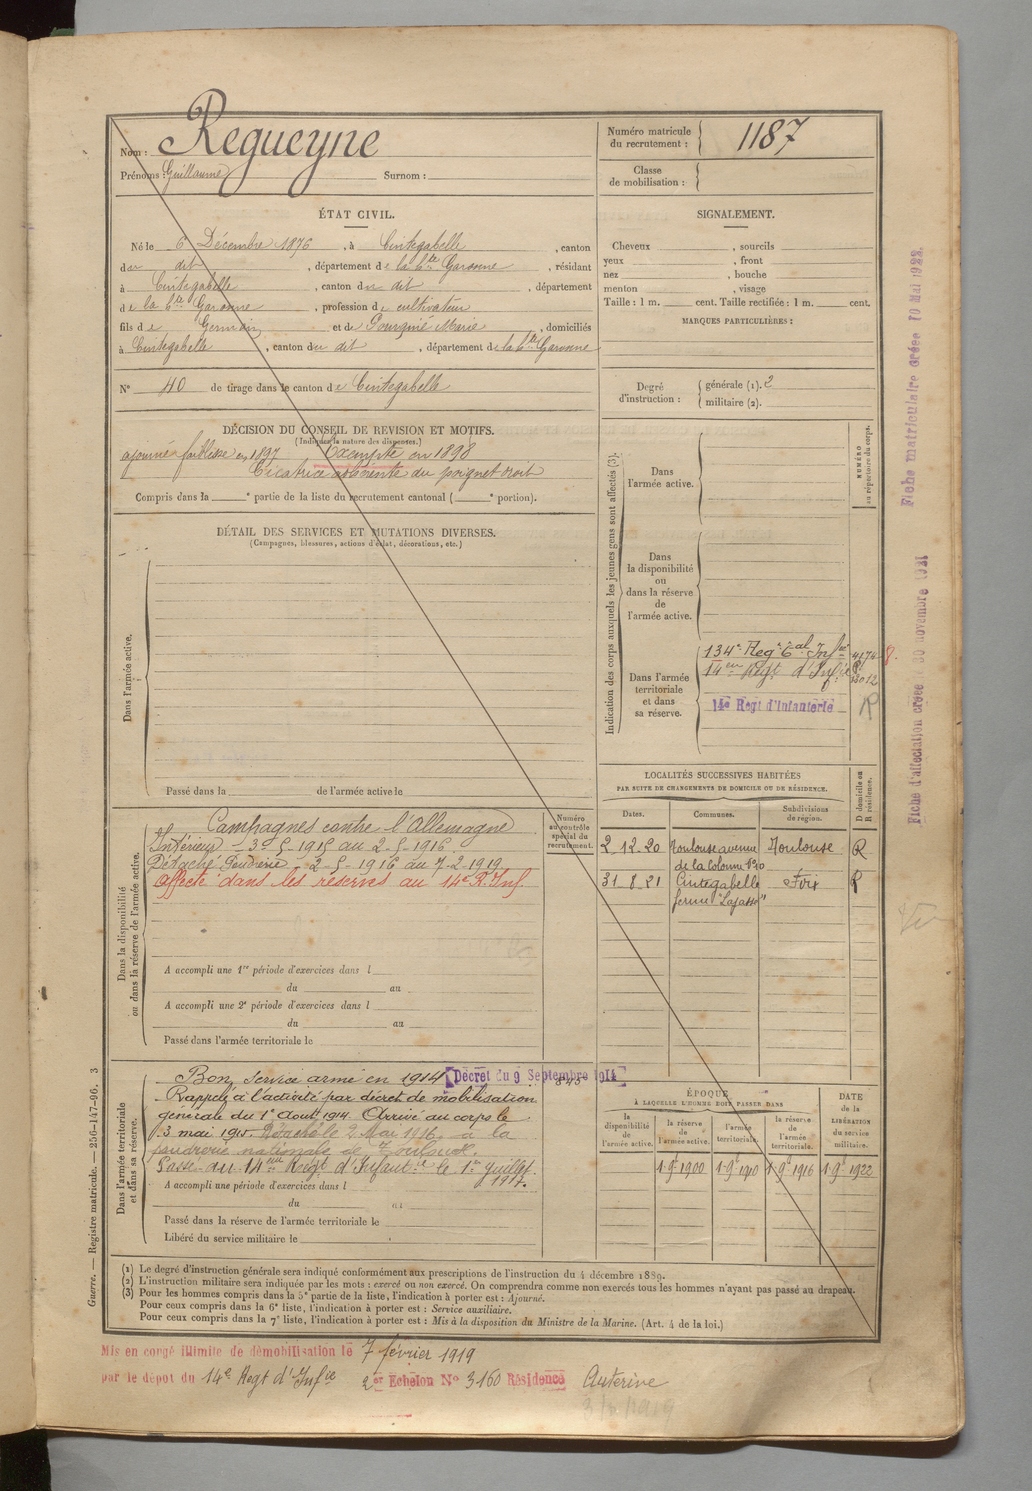 Nom : Regueyne
Prénoms : Guillaume Surnom :
Numéro matricule du recrutement : 1187
Classe de mobilisation :
ÉTAT CIVIL.
Né le 6 Décembre 1876, à Cintegabelle, canton
du dit, département de la hte Garonne, résidant
à Cintegabelle, canton du dit, département
de la hte Garonne, profession de cultivateur
fils de Germain et de Pourgnié Marie, domiciliés
à Cintegabelle, canton du dit, département de la hte Garonne
N° 40 de tirage dans le canton de Cintegabelle
SIGNALEMENT.
Cheveux , sourcils
yeux , front
nez , bouche
menton , visage
Taille : 1 m. cent. Taille rectifiée : 1 m. cent.
MARQUES PARTICULIÈRES :
Degré d'instruction : générale (1). 2
militaire (2).
DÉCISION DU CONSEIL DE REVISION ET MOTIFS.
(Indiquer la nature des dispenses.)
ajourné faiblesse en 1897 Exempté en 1898
Cicatrice adhérente du poignet droit
Compris dans la e partie de la liste du recrutement cantonal ( e portion).
DÉTAIL DES SERVICES ET MUTATIONS DIVERSES.
(Campagnes, blessures, actions d'éclat, décorations, etc.)
Dans l'armée active.
Passé dans la de l'armée active le
Indication des corps auxquels les jeunes gens sont affectés (3).
NUMÉRO au répertoire du corps.
Dans l'armée active.
Dans la disponibilité ou dans la réserve de l'armée active.
Dans l'armée territoriale et dans sa réserve.
134e Regt tal Infie
14em Regt d'Infie
14e Regt d'Infanterie
R
LOCALITÉS SUCCESSIVES HABITÉES
PAR SUITE DE CHANGEMENTS DE DOMICILE OU DE RÉSIDENCE.
Dates. Communes. Subdivisions de région. D domicile ou R résidence.
2 12 20 Toulouse avenue de la Colonne Toulouse R
31 8 21 Cintegabelle ferme "Lajasse" Foix R
Dans la disponibilité ou dans la réserve de l'armée active.
Numéro au contrôle spécial du recrutement.
Campagnes contre l'Allemagne
Intérieur - 3-5-1915 au 2-5-1916
Détaché Poudrerie - 2-5-1916 au 7-2-1919
affecté dans les réserves au 14e R. Inf.
A accompli une 1re période d'exercices dans l
du au
A accompli une 2e période d'exercices dans l
du au
Passé dans l'armée territoriale le
Dans l'armée territoriale et dans sa réserve.
Bon service armé en 1914 Décret du 9 Septembre 1914
Rappelé à l'activité par décret de mobilisation
générale du 1er Août 1914. Arrivé au corps le
3 mai 1915. Détaché le 2 Mai 1916 à la
poudrerie nationale de Toulouse.
Passé au 14me Régt d'Infantie le 1er juillet
1917.
A accompli une période d'exercices dans l
du au
Passé dans la réserve de l'armée territoriale le
Libéré du service militaire le
ÉPOQUE
À LAQUELLE L'HOMME DOIT PASSER DANS
la disponibilité de l'armée active. la réserve de l'armée active. l'armée territoriale. la réserve de l'armée territoriale. DATE de la LIBÉRATION du service militaire.
1 9e 1900 1 9e 1910 1 9e 1916 1 9e 1922
(1) Le degré d'instruction générale sera indiqué conformément aux prescriptions de l'instruction du 4 décembre 1889.
(2) L'instruction militaire sera indiquée par les mots : exercé ou non exercé. On comprendra comme non exercés tous les hommes n'ayant pas passé au drapeau.
(3) Pour les hommes compris dans la 5e partie de la liste, l'indication à porter est : Ajourné.
Pour ceux compris dans la 6e liste, l'indication à porter est : Service auxiliaire.
Pour ceux compris dans la 7e liste, l'indication à porter est : Mis à la disposition du Ministre de la Marine. (Art. 4 de la loi.)
Guerre. — Registre matricule. — 256-147-96. 3
Mis en congé illimité de démobilisation le 7 février 1919
par le dépôt du 14e Regt d'Infie 2er Echelon N° 3160 Résidence Auterive
Fiche matriculaire créée 10 Mai 1922.
Fiche d'affectation créée 30 novembre 1921